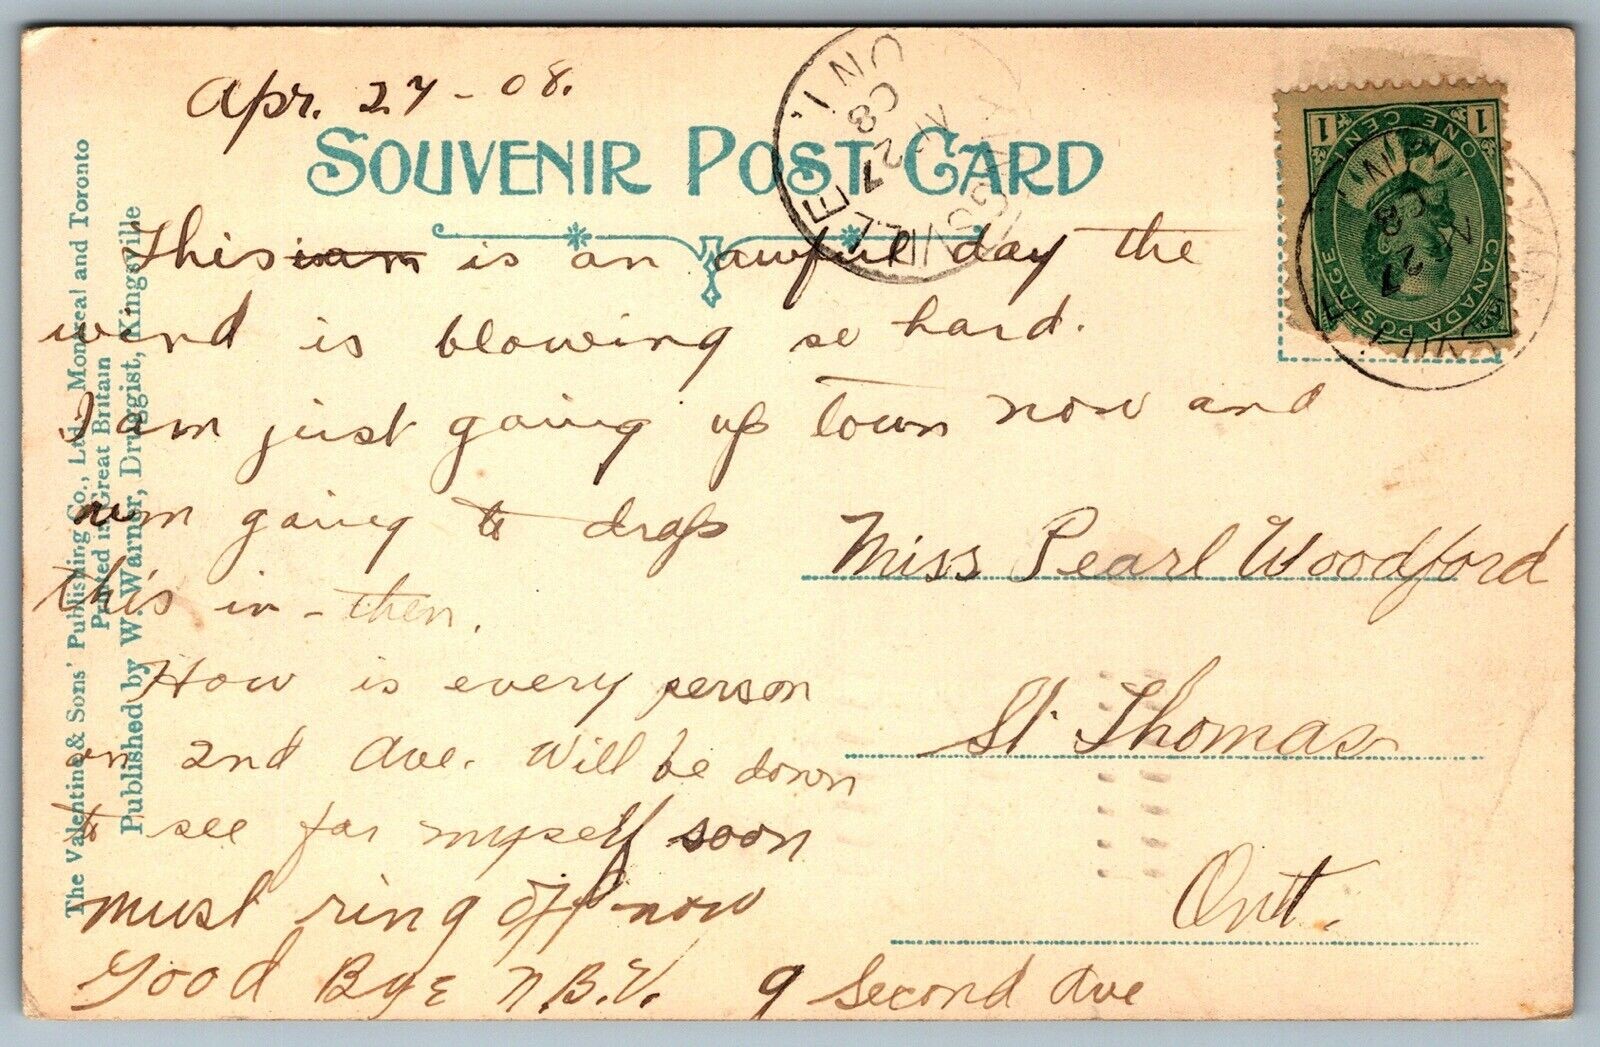 Apr. 27 - 08.
SOUVENIR POST CARD
This iam is an awful day the
wind is blowing so hard.
I am just going up town now and
am going to drop
this in - then.
How is every person
on 2nd Ave. Will be down
to see for myself soon
must ring off now
Good Bye N.B.V.
Miss Pearl Woodford
St. Thomas
Ont.
9 Second Ave
The Valentine & Sons' Publishing Co., Ltd., Montreal and Toronto
Printed in Great Britain
Published by W. Warner, Druggist, Kingsville
ONT.
27
08
CANADA POSTAGE
ONE CENT
1 1
27
08